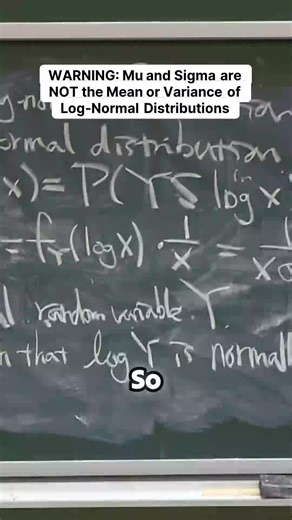 WARNING: Mu and Sigma are
NOT the Mean or Variance of
Log-Normal Distributions
normal distribution
x) = P(Y ≤ log x
= f_Y(log x) · 1/x = 1/xσ
random variable Y
that log Y is normal
So